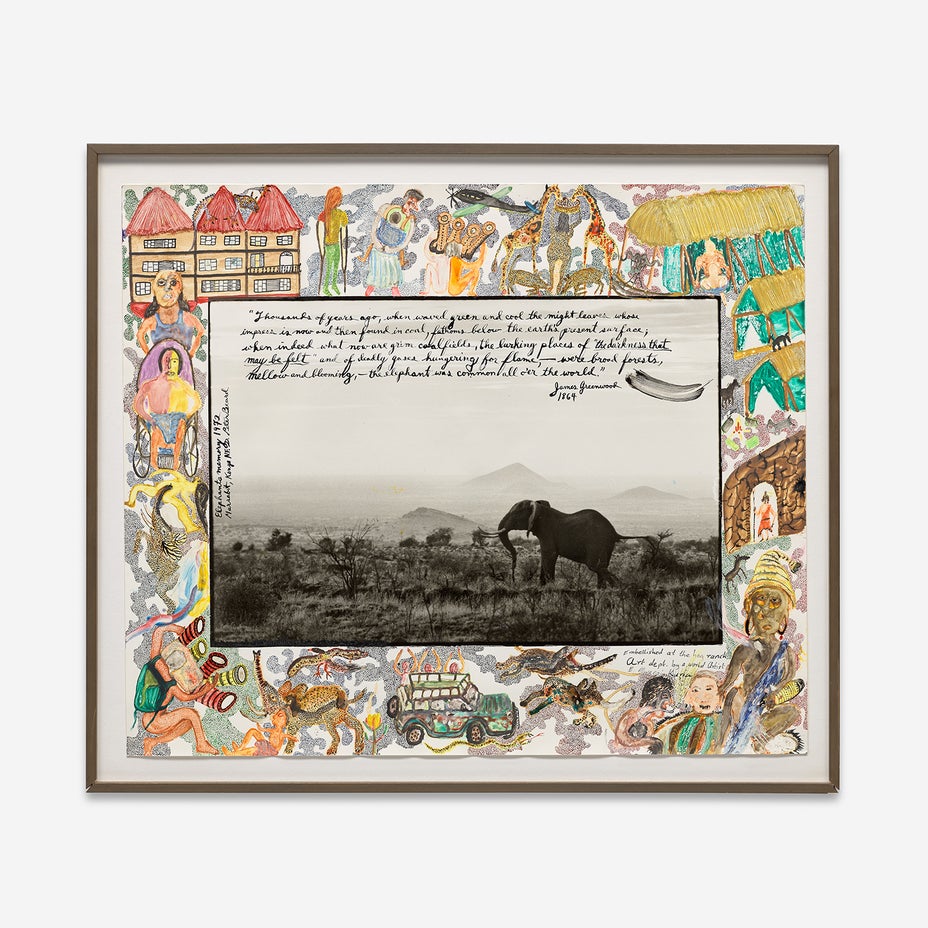 "Thousands of years ago, when waved green and cool the might leaves whose
impress is now and then found in coal, fathoms below the earths present surface;
when indeed what now are grim coalfields, the lurking places of "the darkness that
may be felt" and of deadly gases hungering for flame,— were broad forests,
mellow and blooming,— the elephant was common all o'er the world."
James Greenwood
1864
Elephants memory 1972
Marsabit, Kenya Peter Beard
Embellished at the hog ranch
Art dept. by a world Artist